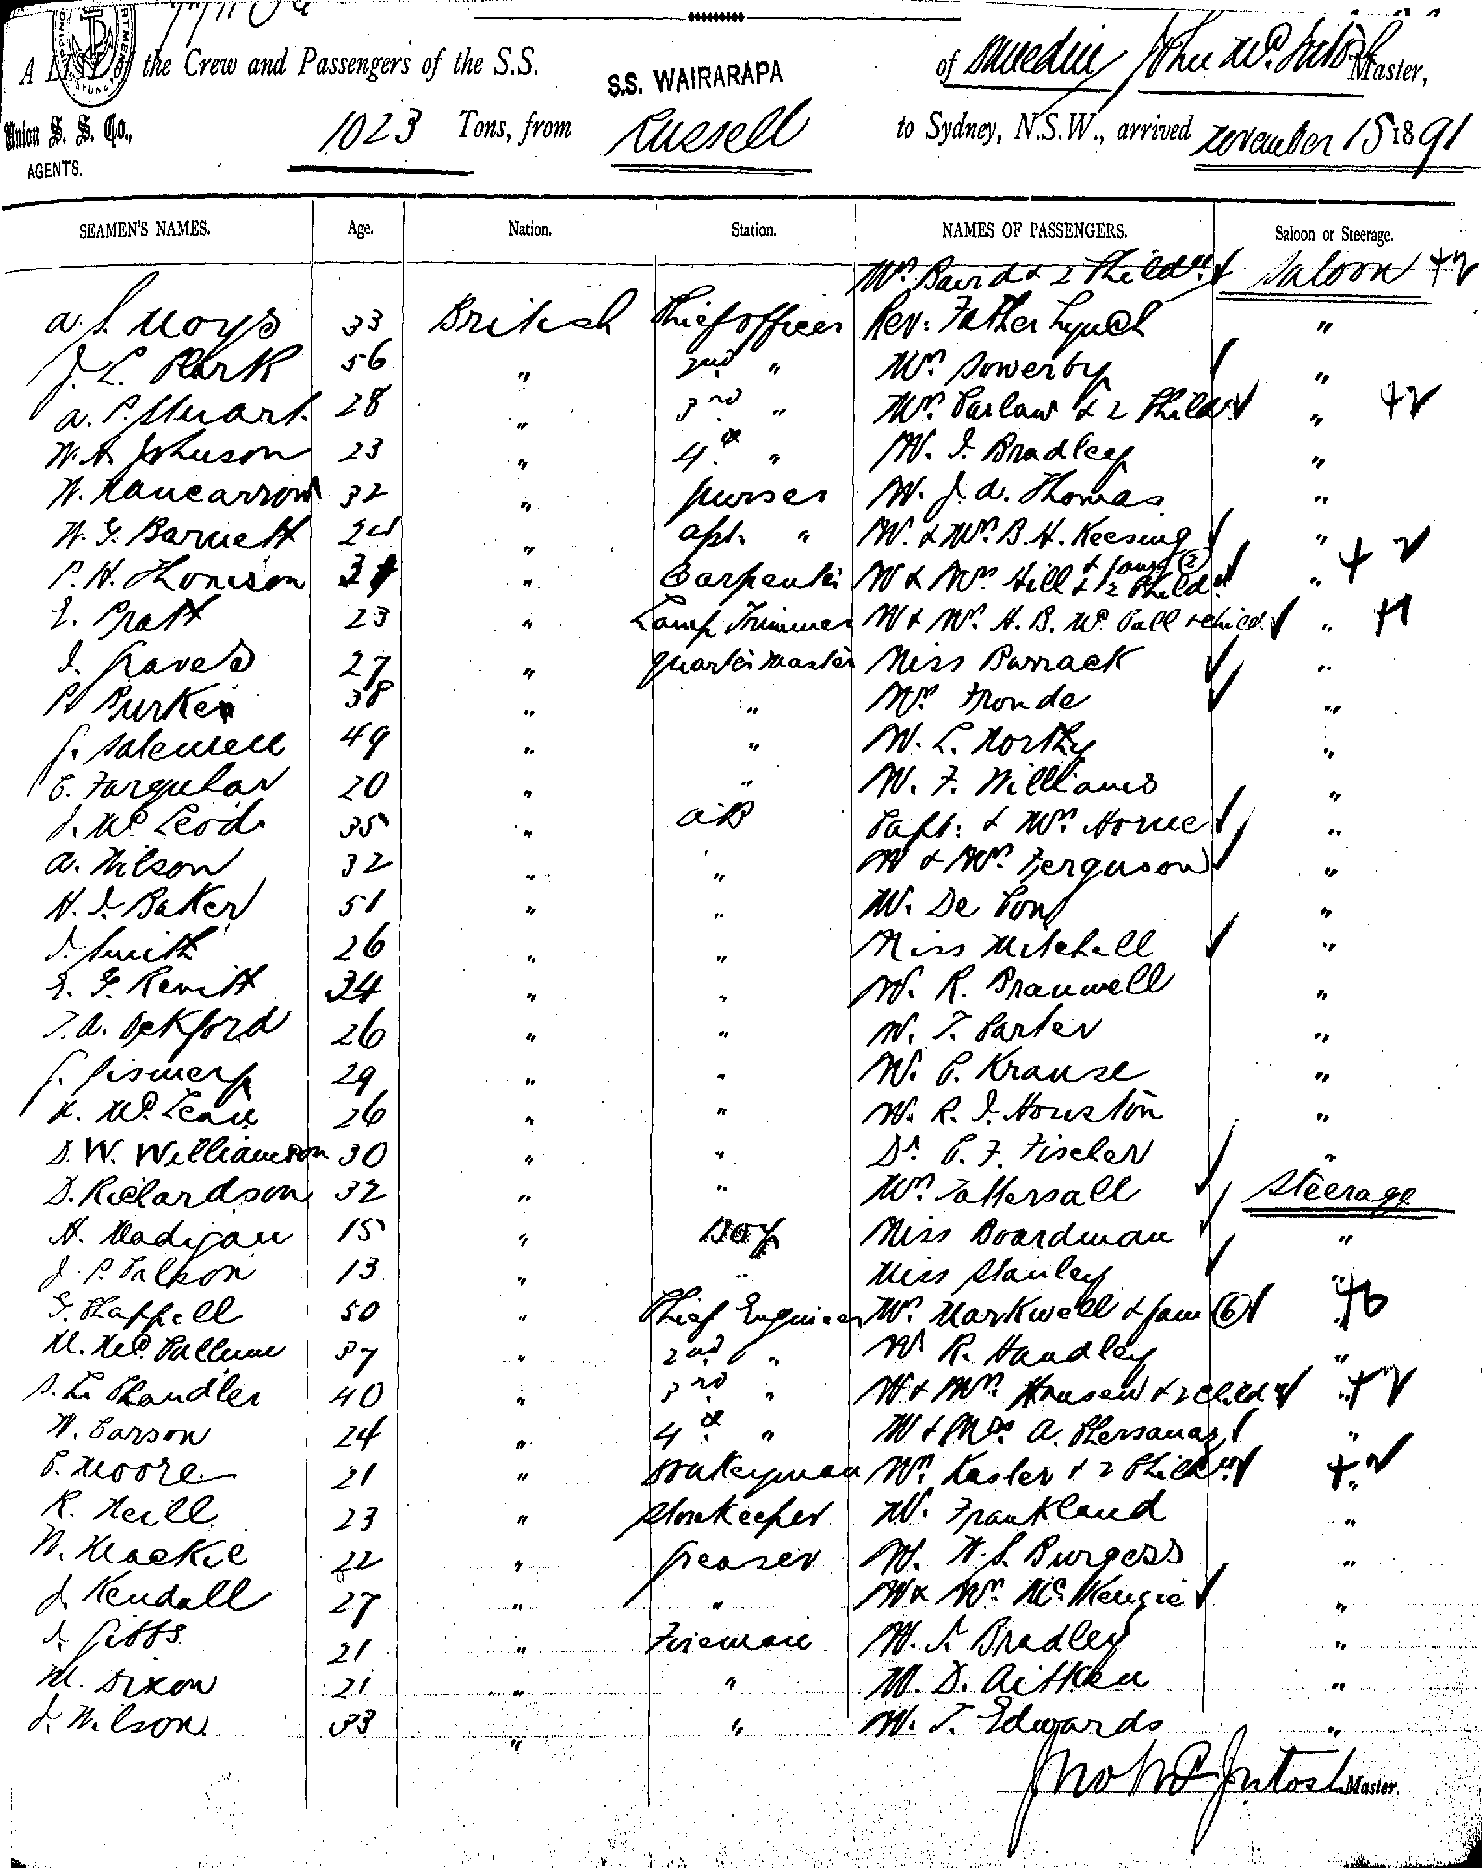 A List of the Crew and Passengers of the S.S. S.S. WAIRARAPA of Dunedin John McIntosh Master,
Union S. S. Co., 1023 Tons, from Russell to Sydney, N.S.W., arrived November 15 1891
AGENTS.
SEAMEN'S NAMES. Age. Nation. Station. NAMES OF PASSENGERS. Saloon or Steerage.
Mrs Baird & 2 Childn Saloon +2
A. L. Moys 33 British Chief officer Rev: Father Lynch "
J. L. Clark 56 " 2nd " Mrs Sowerby "
A. C. Stuart 28 " 3rd " Mrs Carlaw & 2 Childn " +2
W. A. Johnson 23 " 4th " Mr. J. Bradley "
W. Nancarrow 32 " purser Mr. J. A. Thomas "
W. G. Barnett 24 " asst. " Mr. & Mrs B. H. Keesing "
P. H. Thomson " Carpenter Mr & Mrs Hill & 2 Childn " + 2
E. Pratt 23 " Lamp Trimmer Mr & Mrs A. B. McCall & child " +1
J. Graves 27 " quarter master Miss Barrack "
P. 38 " " Mrs Fronde "
G. 49 " " Mr. L. Northy "
C. Farquhar 20 " " Mr. F. Williams "
J. McLeod 35 " AB Capt: & Mrs Horne "
A. Wilson 32 " " Mr & Mrs Ferguson "
H. J. Baker 51 " " Mr. De "
J. Smith 26 " " Miss Mitchell "
E. G. Revitt 34 " " Mr. R. Bramwell "
T. A. Ockford 26 " " Mr. T. Carter "
G. 29 " " Mr. C. Krause "
K. McLean 26 " " Mr. R. J. Houston "
D. W. Williamson 30 " " Dr. C. F. Fischer "
D. Richardson 32 " " Mrs Tattersall Steerage
H. Madigan 15 " Boy Miss Boardman "
J. P. 13 " " Miss Stanley "
G. Chappell 50 " Chief Engineer Mrs Markwell & fam (6) " +6
M. McCallum 37 " 2nd " Mr R. Handley "
S. L. Chandler 40 " 3rd " Mr & Mrs Hansen & 2 childn " +2
W. Carson 24 " 4th " Mr & Mrs A. "
C. Moore 21 " Donkeyman Mrs Kasler & 2 Childn " +2
R. Neill 23 " Storekeeper Mr. Frankland "
W. Mackie 22 " Greaser Mr. W. S. Burgess "
J. Kendall 27 " " Mr & Mrs McKenzie "
J. Gibbs 21 " Fireman Mr. J. Bradley "
M. Dixon 21 " " Mr. D. Aitken "
J. Wilson 33 " " Mr. T. Edwards "
Jno McIntosh Master.